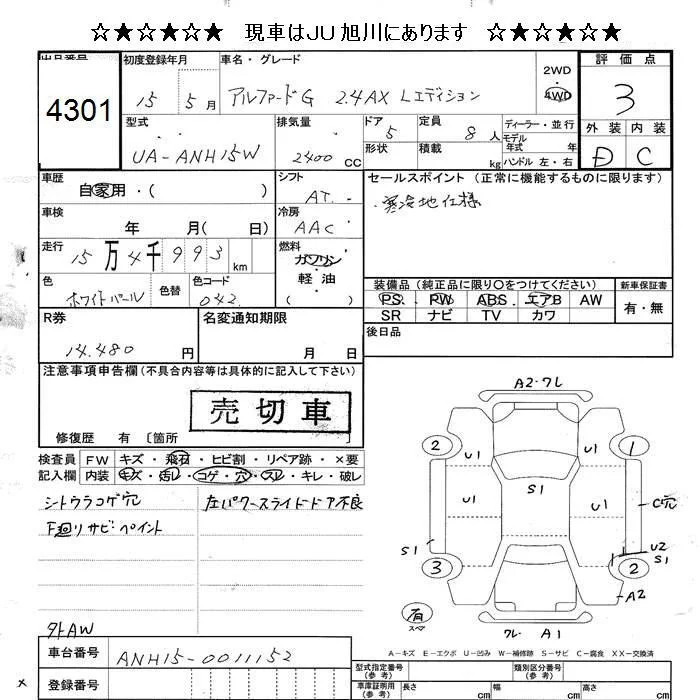 ☆★☆★☆★ 現車はJU旭川にあります ☆★☆★☆★
出品番号 初度登録年月 車名・グレード 評価点
4301 15 5月 アルファードG 2.4AX Lエディション 2WD 4WD 3
型式 排気量 ドア 定員 ディーラー・並行 外装 内装
UA-ANH15W 2400 CC 5 8人 モデル 年式 年 D C
形状 積載 kg ハンドル 左・右
車歴 自家用・( ) シフト AT セールスポイント(正常に機能するものに限ります)
車検 年 月( 日) 冷房 AAC ・寒冷地仕様
走行 15万4千993km 燃料 ガソリン 軽油
色 ホワイトパール 色替 色コード 042
装備品(純正品に限り〇をつけてください) 新車保証書
PS RW ABS エアB AW 有・無
SR ナビ TV カワ
R券 14.480円 名変通知期限 月 日 後日品
注意事項申告欄(不具合内容等は具体的に記入して下さい)
売切車
修復歴 有 〔箇所 〕
検査員 FW キズ・飛石・ヒビ割・リペア跡・×要
記入欄 内装 キズ・汚レ・コゲ・穴・スレ・キレ・破レ
シートウラコゲ穴 左パワースライドドア不良
F廻りサビペイント
外AW
A2・ワレ
2 U1 U1 1
U1 S1 U1 C穴
S1 U2 S1
3 2
A2
有 スペア
ワレ A1
A-キズ E-エクボ U-凹み W-補修跡 S-サビ C-腐食 XX-交換済
車台番号 ANH15-0011152 型式指定番号(参考) 類別区分番号(参考)
登録番号 車庫証明用(参考) 長さ cm 幅 cm 高さ cm